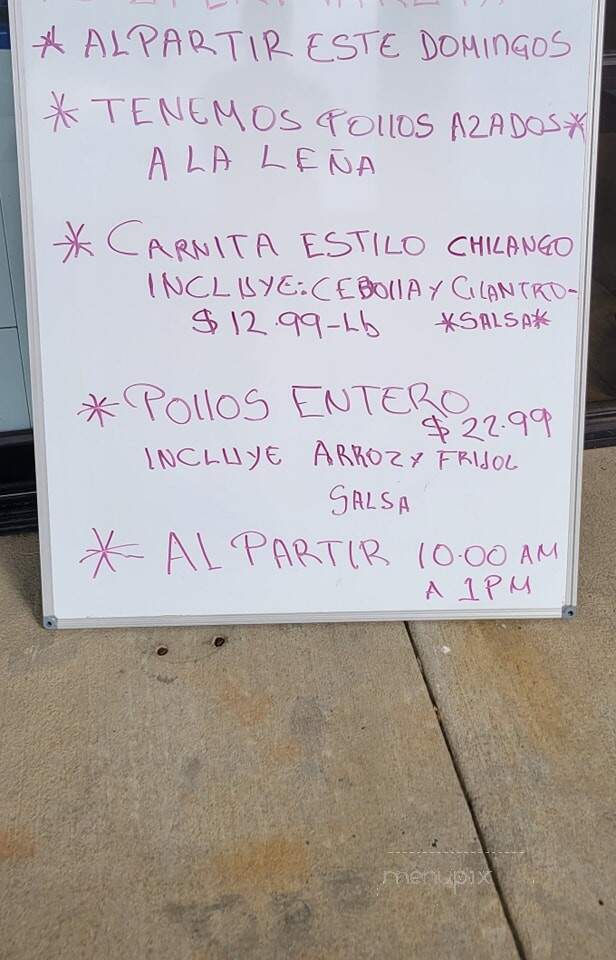 * AL PARTIR ESTE DOMINGOS
* TENEMOS POLLOS AZADOS *
A LA LEÑA
* CARNITA ESTILO CHILANGO
INCLUYE: CEBOLLA Y CILANTRO-
$12.99-Lb *SALSA*
* POLLOS ENTERO
$22.99
INCLUYE ARROZ Y FRIJOL
SALSA
*- AL PARTIR 10:00 AM
A 1PM
menupix